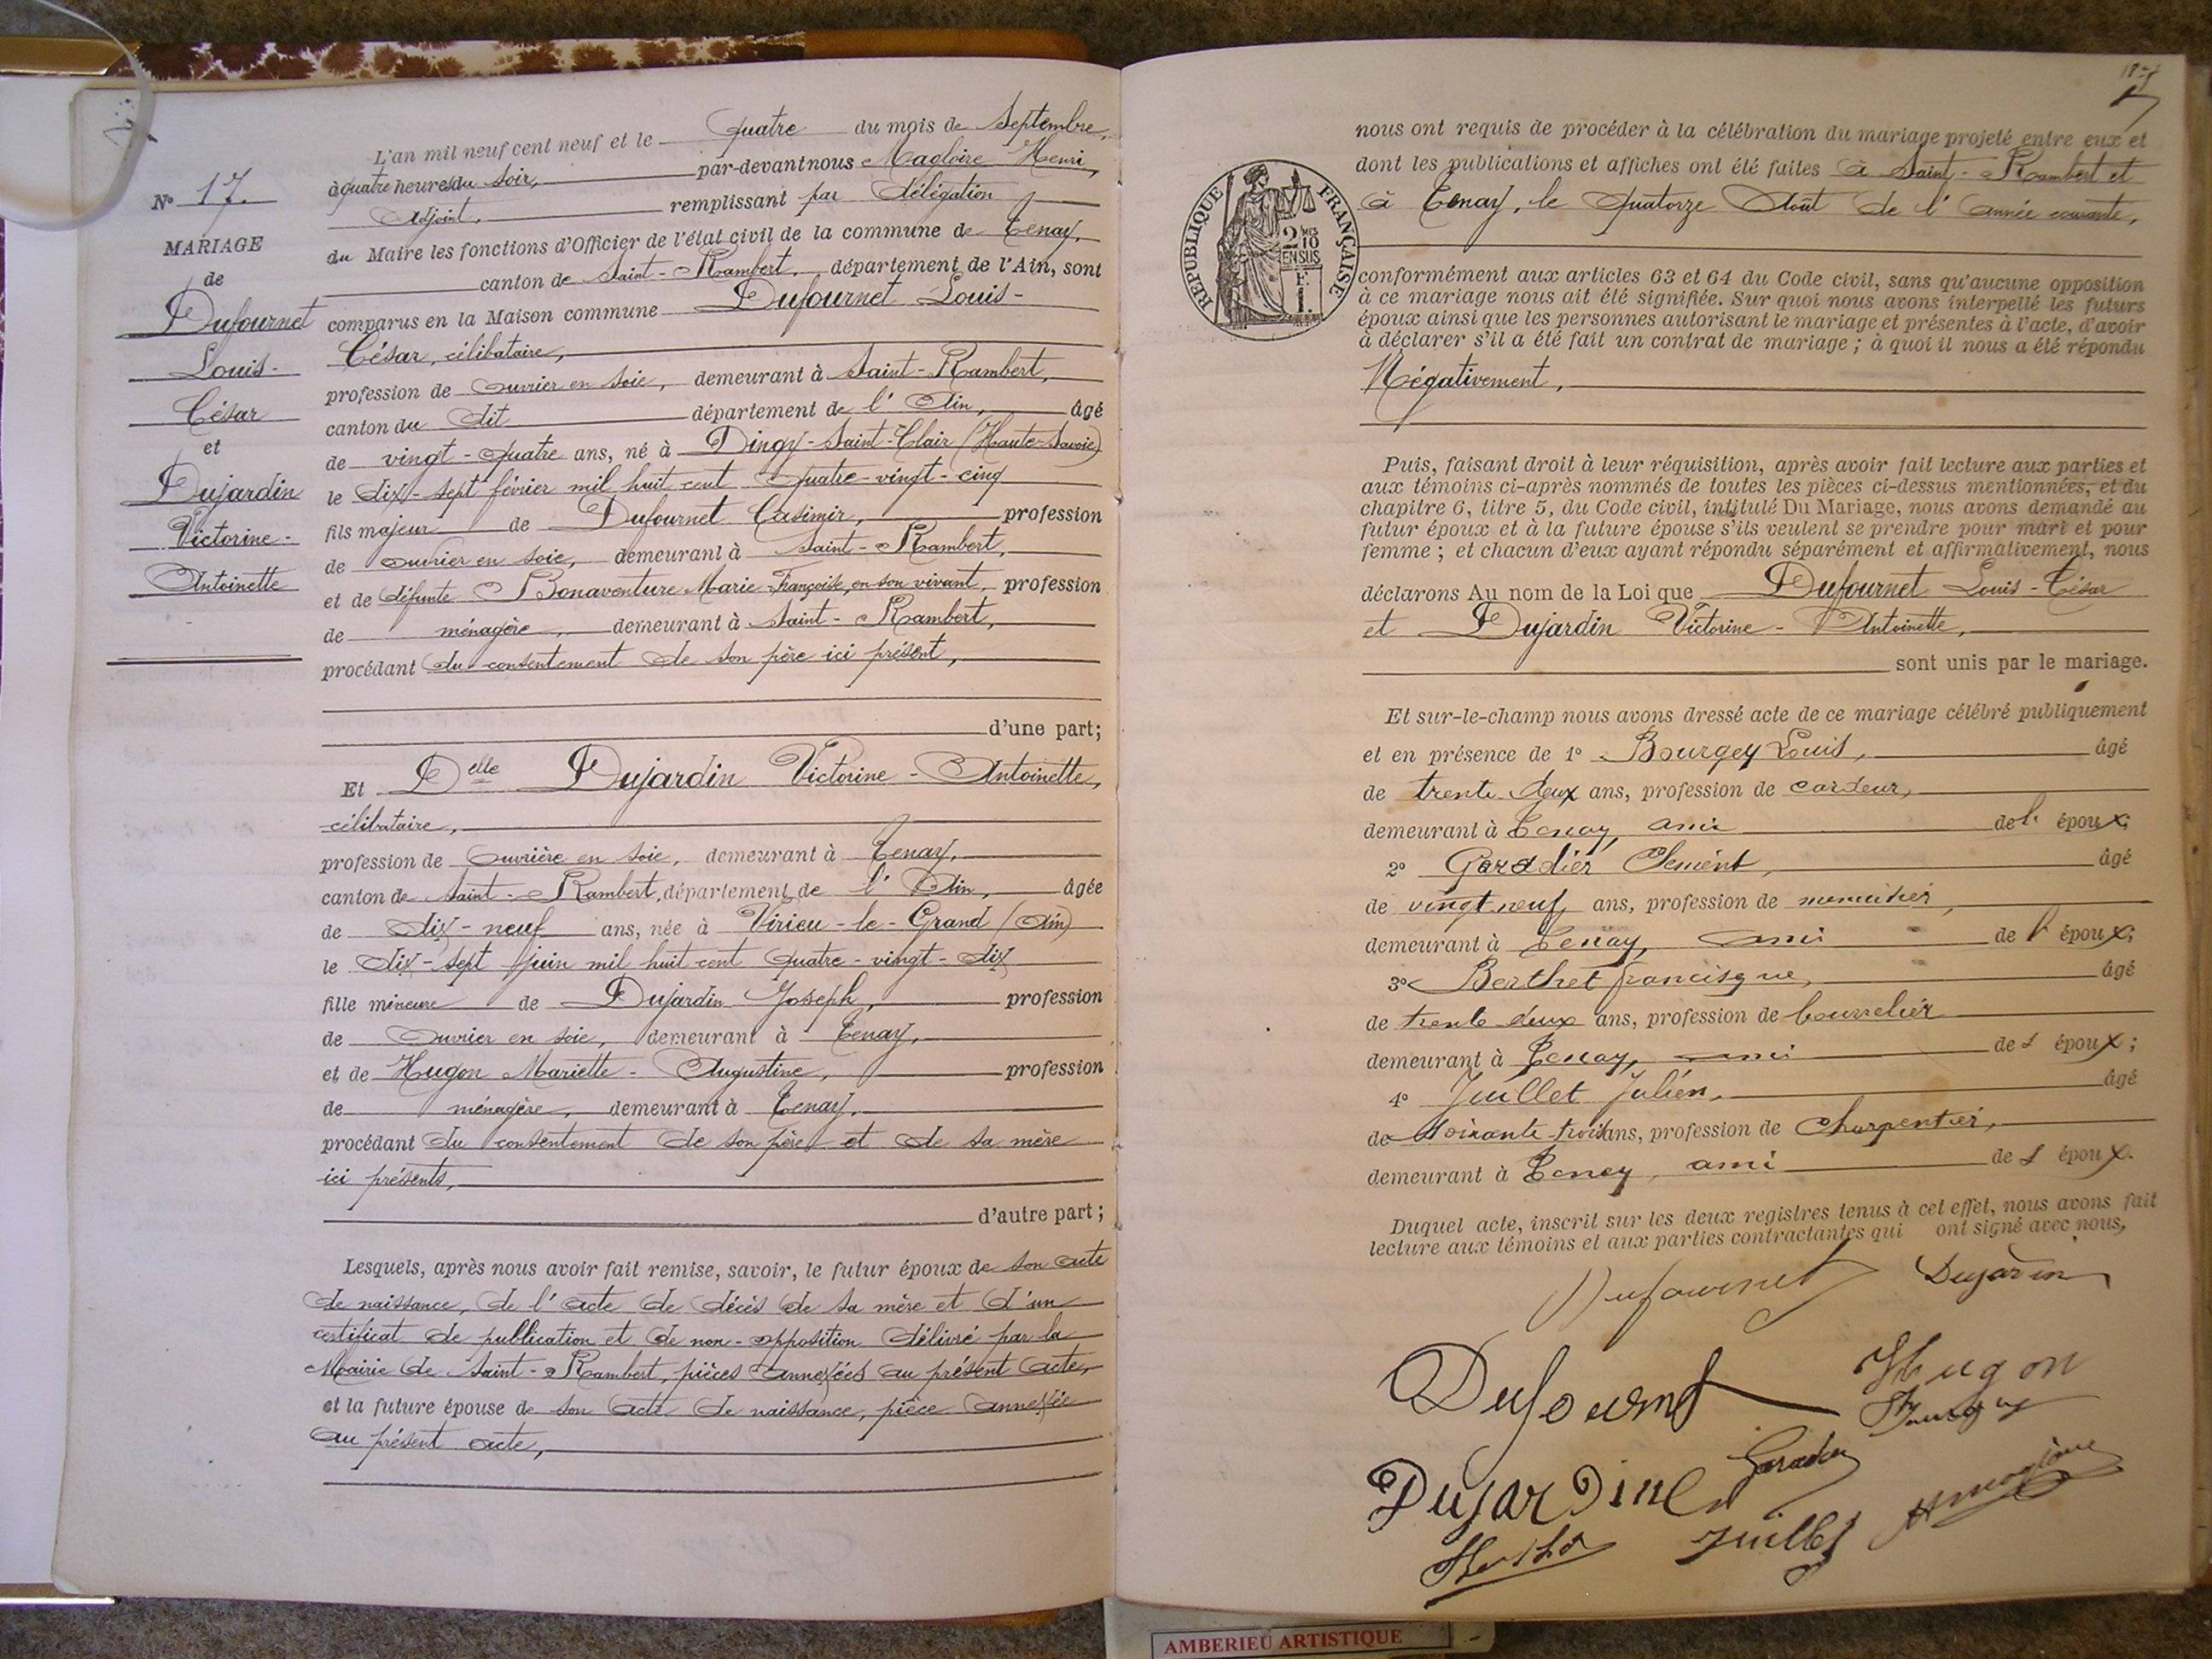 N° 17.
MARIAGE
de
Dufournet
Louis-
César
et
Dujardin
Victorine-
Antoinette
L'an mil neuf cent neuf et le quatre du mois de Septembre,
à quatre heures du soir, par-devant nous Magloire Henri,
Adjoint, remplissant par délégation
du Maire les fonctions d'Officier de l'état civil de la commune de Tenay,
canton de Saint-Rambert, département de l'Ain, sont
comparus en la Maison commune Dufournet Louis-
César, célibataire,
profession de ouvrier en soie, demeurant à Saint-Rambert,
canton du dit département de l'Ain, âgé
de vingt-quatre ans, né à Dingy-Saint-Clair (Haute-Savoie)
le dix-sept février mil huit cent quatre-vingt-cinq
fils majeur de Dufournet Casimir, profession
de ouvrier en soie, demeurant à Saint-Rambert,
et de défunte Bonaventure Marie-Françoise, en son vivant, profession
de ménagère, demeurant à Saint-Rambert,
procédant du consentement de son père ici présent,
d'une part;
Et Delle Dujardin Victorine-Antoinette,
célibataire,
profession de Ouvrière en soie, demeurant à Tenay,
canton de Saint-Rambert, département de l'Ain, âgée
de dix-neuf ans, née à Virieu-le-Grand (Ain)
le dix-sept juin mil huit cent quatre-vingt-dix
fille mineure de Dujardin Joseph, profession
de ouvrier en soie, demeurant à Tenay,
et de Hugon Mariette-Augustine, profession
de ménagère, demeurant à Tenay,
procédant du consentement de son père et de sa mère
ici présents,
d'autre part;
Lesquels, après nous avoir fait remise, savoir, le futur époux de son acte
de naissance, de l'acte de décès de sa mère et d'un
certificat de publication et de non-opposition délivré par la
Mairie de Saint-Rambert, pièces annexées au présent acte,
et la future épouse de son acte de naissance, pièce annexée
au présent acte,
nous ont requis de procéder à la célébration du mariage projeté entre eux et
dont les publications et affiches ont été faites à Saint-Rambert et
à Tenay, le quatorze Août de l'année courante,
RÉPUBLIQUE FRANÇAISE
2 MES
10
EN SUS
F.
1.
conformément aux articles 63 et 64 du Code civil, sans qu'aucune opposition
à ce mariage nous ait été signifiée. Sur quoi nous avons interpellé les futurs
époux ainsi que les personnes autorisant le mariage et présentes à l'acte, d'avoir
à déclarer s'il a été fait un contrat de mariage ; à quoi il nous a été répondu
Négativement,
Puis, faisant droit à leur réquisition, après avoir fait lecture aux parties et
aux témoins ci-après nommés de toutes les pièces ci-dessus mentionnées, et du
chapitre 6, titre 5, du Code civil, intitulé Du Mariage, nous avons demandé au
futur époux et à la future épouse s'ils veulent se prendre pour mari et pour
femme ; et chacun d'eux ayant répondu séparément et affirmativement, nous
déclarons Au nom de la Loi que Dufournet Louis-César
et Dujardin Victorine-Antoinette,
sont unis par le mariage.
Et sur-le-champ nous avons dressé acte de ce mariage célébré publiquement
et en présence de 1° Bourgey Louis, âgé
de trente deux ans, profession de cardeur,
demeurant à Tenay, ami de l' époux;
2° Garadier Clément, âgé
de vingt neuf ans, profession de menuisier,
demeurant à Tenay, ami de l' époux;
3° Berthet francisque, âgé
de trente deux ans, profession de bourrelier
demeurant à Tenay, ami de l époux;
4° Juillet Julien, âgé
de soixante-trois ans, profession de Charpentier,
demeurant à Tenay, ami de l époux.
Duquel acte, inscrit sur les deux registres tenus à cet effet, nous avons fait
lecture aux témoins et aux parties contractantes qui ont signé avec nous,
Dufournet Dujardin
Dufournet Hugon
Dujardin
Juillet
AMBERIEU ARTISTIQUE